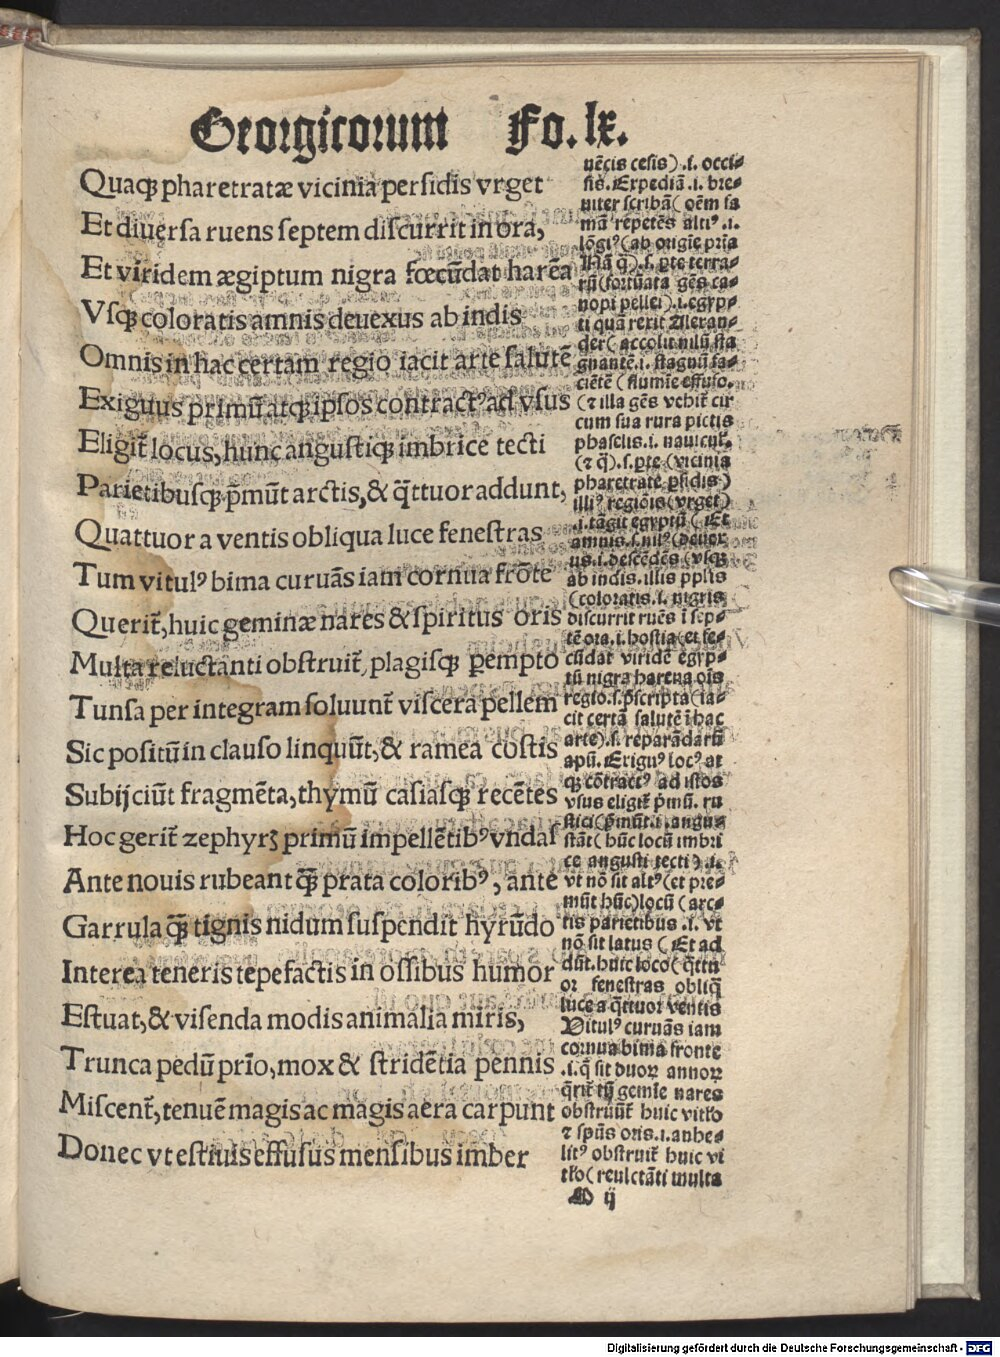 Georgicorum Fo. lx.
Quaqꝫ pharetratæ vicinia persidis vrget
Et diuersa ruens septem discurrit in ora,
Et viridem ægiptum nigra fœcũdat harẽa
Vsqꝫ coloratis amnis deuexus ab indis
Omnis in hac certam regio iacit arte salutẽ
Exiguus primũ atqꝫ ipsos contractꝰ ad vsus
Eligit̃ locus, hunc angustiqꝫ imbrice tecti
Parietibusqꝫ p̃mũt arctis, & q̃ttuor addunt,
Quattuor a ventis obliqua luce fenestras
Tum vitulꝰ bima curuãs iam cornua frõte
Querit̃, huic geminæ nares & spiritus oris
Multa reluctanti obstruit̃, plagisqꝫ ꝑempto
Tunsa per integram soluunt̃ viscera pellem
Sic positũ in clauso linquũt, & ramea costis
Subijciũt fragmẽta, thymũ casiasqꝫ recẽtes
Hoc gerit̃ zephyrꝫ primũ impellẽtibꝰ vndas
Ante nouis rubeant qꝫ̃ prata coloribꝰ, ante
Garrula qꝫ̃ tignis nidum suspendit hyrũdo
Interea teneris tepefactis in ossibus humor
Estuat, & visenda modis animalia miris,
Trunca pedũ prĩo, mox & stridẽtia pennis
Miscent̃, tenuẽ magis ac magis aera carpunt
Donec vt estiuis effusus mensibus imber
uẽcis cesis) .i. occi-
sis. Expediã .i. bre-
uiter scribã( oẽm fa
mã repetẽs altiꝰ .i.
lõgiꝰ( ab origĩe prĩa
Nã q̃) .s. ꝑte terra-
rũ( fortũata gẽs ca-
nopi pellei) .i. egyp-
ti quã rexit Alexan-
der( accolit nilũ sta
gnantẽ .i. stagnũ fa-
ciẽtẽ ( flumĩe effuso.
(⁊ illa gẽs vehit̃ cir
cum sua rura pictis
phaselis .i. nauicul̃.
(⁊ q̃) .s. ꝑte (vicinia
pharetratẽ ꝑsidis)
illiꝰ regiõis( vrget)
.i. tãgit egyptũ ( Et
amnis .s. nilꝰ( deuex
us .i. descẽdẽs ( vsqꝫ
ab indis .illis pplĩs
(coloratis .i. nigris
discurrit ruẽs ĩ sep-
tẽ ora .i. hostia( et fe-
cũdat viridẽ egyp-
tũ nigra harena oĩs
regio .s. p̃scripta( ia-
cit certã salutẽ ĩ hac
arte) .s. reparãdarũ
apũ. Exiguꝰ locꝰ at
qꝫ cõtractꝰ ad istos
vsus eligit̃ p̃mũ. ru
stici( p̃mũt .i. angu-
stãt( hũc locũ imbri
ce angusti tecti) .i.
vt nõ sit altꝰ( et pre-
mũt hũc) locũ ( arc-
tis parietibus .i. vt
nõ sit latus ( Et ad
dũt. huic loco( q̃ttu
or fenestras obliq̃
luce a q̃ttuor ventis
Vitulꝰ curuãs iam
cornua bima fronte
.i. q̃ sit duoꝝ annoꝝ
q̃rit̃ tũ gemĩe nares
obstruũt̃ huic vitło
⁊ spũs oris .i. anhe-
litꝰ obstruit̃ huic vi
tło( reulctãti multa
M ij
Digitalisierung gefördert durch die Deutsche Forschungsgemeinschaft - DFG